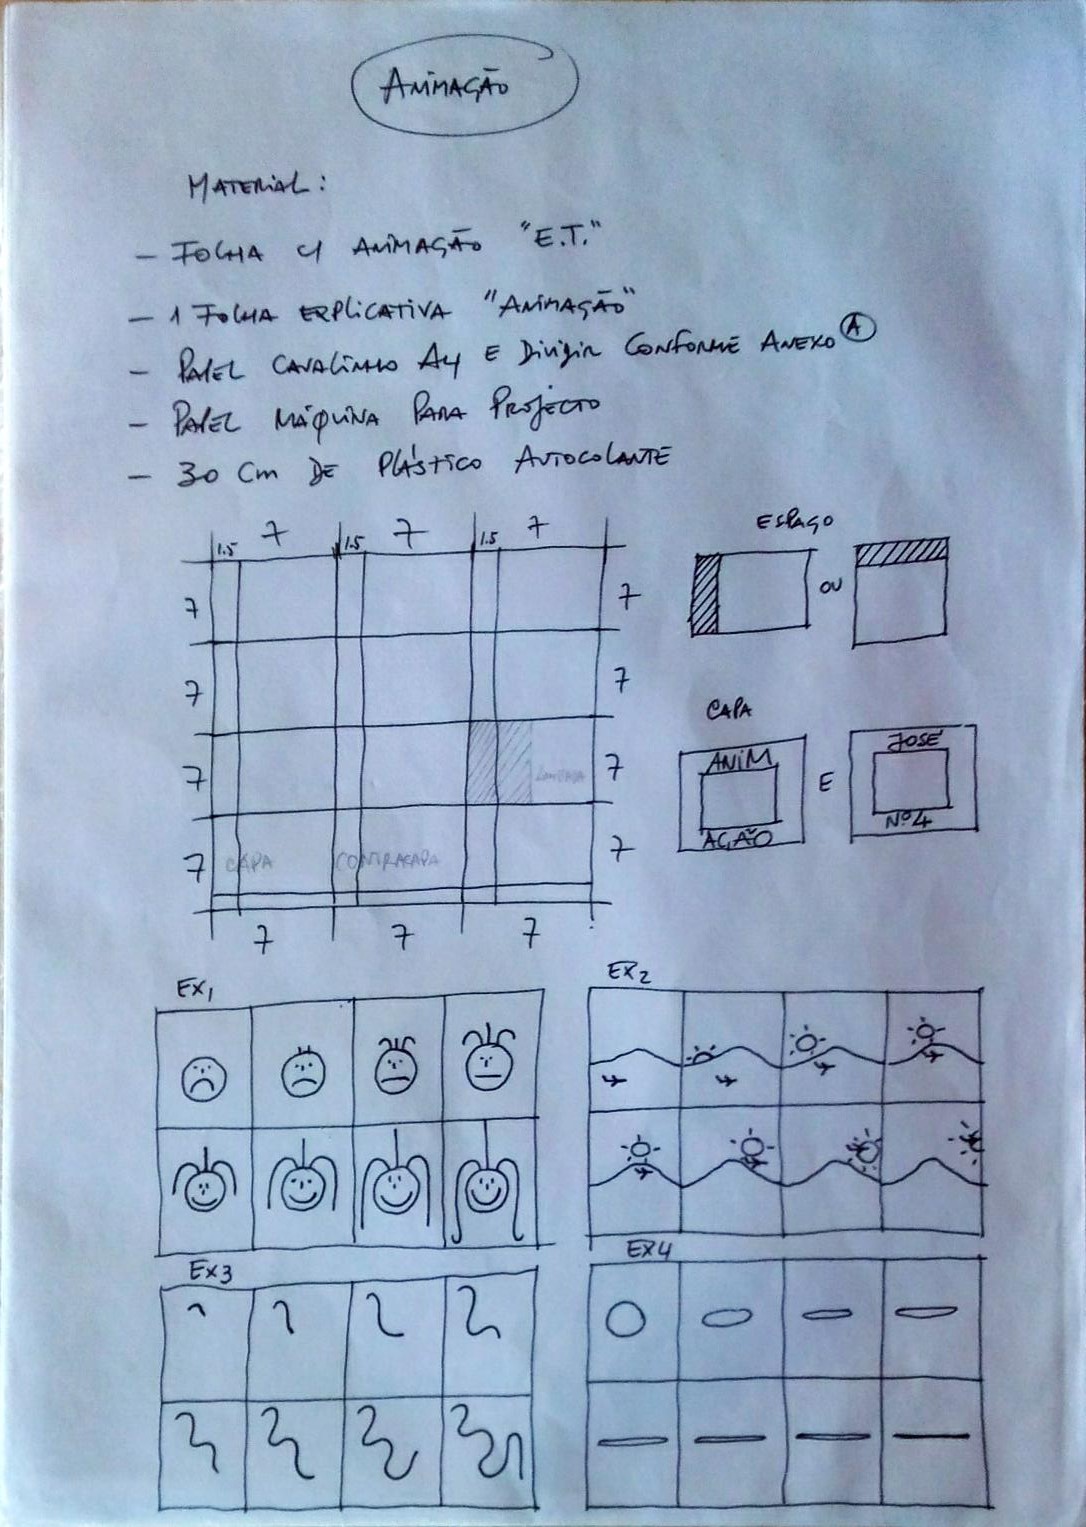 ANIMAÇÃO
MATERIAL:
- FOLHA C/ ANIMAÇÃO "E.T."
- 1 FOLHA EXPLICATIVA "ANIMAÇÃO"
- PAPEL CAVALINHO A4 E DIVIDIR CONFORME ANEXO A
- PAPEL MÁQUINA PARA PROJECTO
- 30 Cm DE PLÁSTICO AUTOCOLANTE
1.5 7 1.5 7 1.5 7
7 7
7 7
7 7
7 CAPA CONTRACAPA 7
7 7 7
ESPAÇO
OU
CAPA
ANIM
AÇÃO
E
JOSÉ
Nº4
EX1
EX2
EX3
EX4